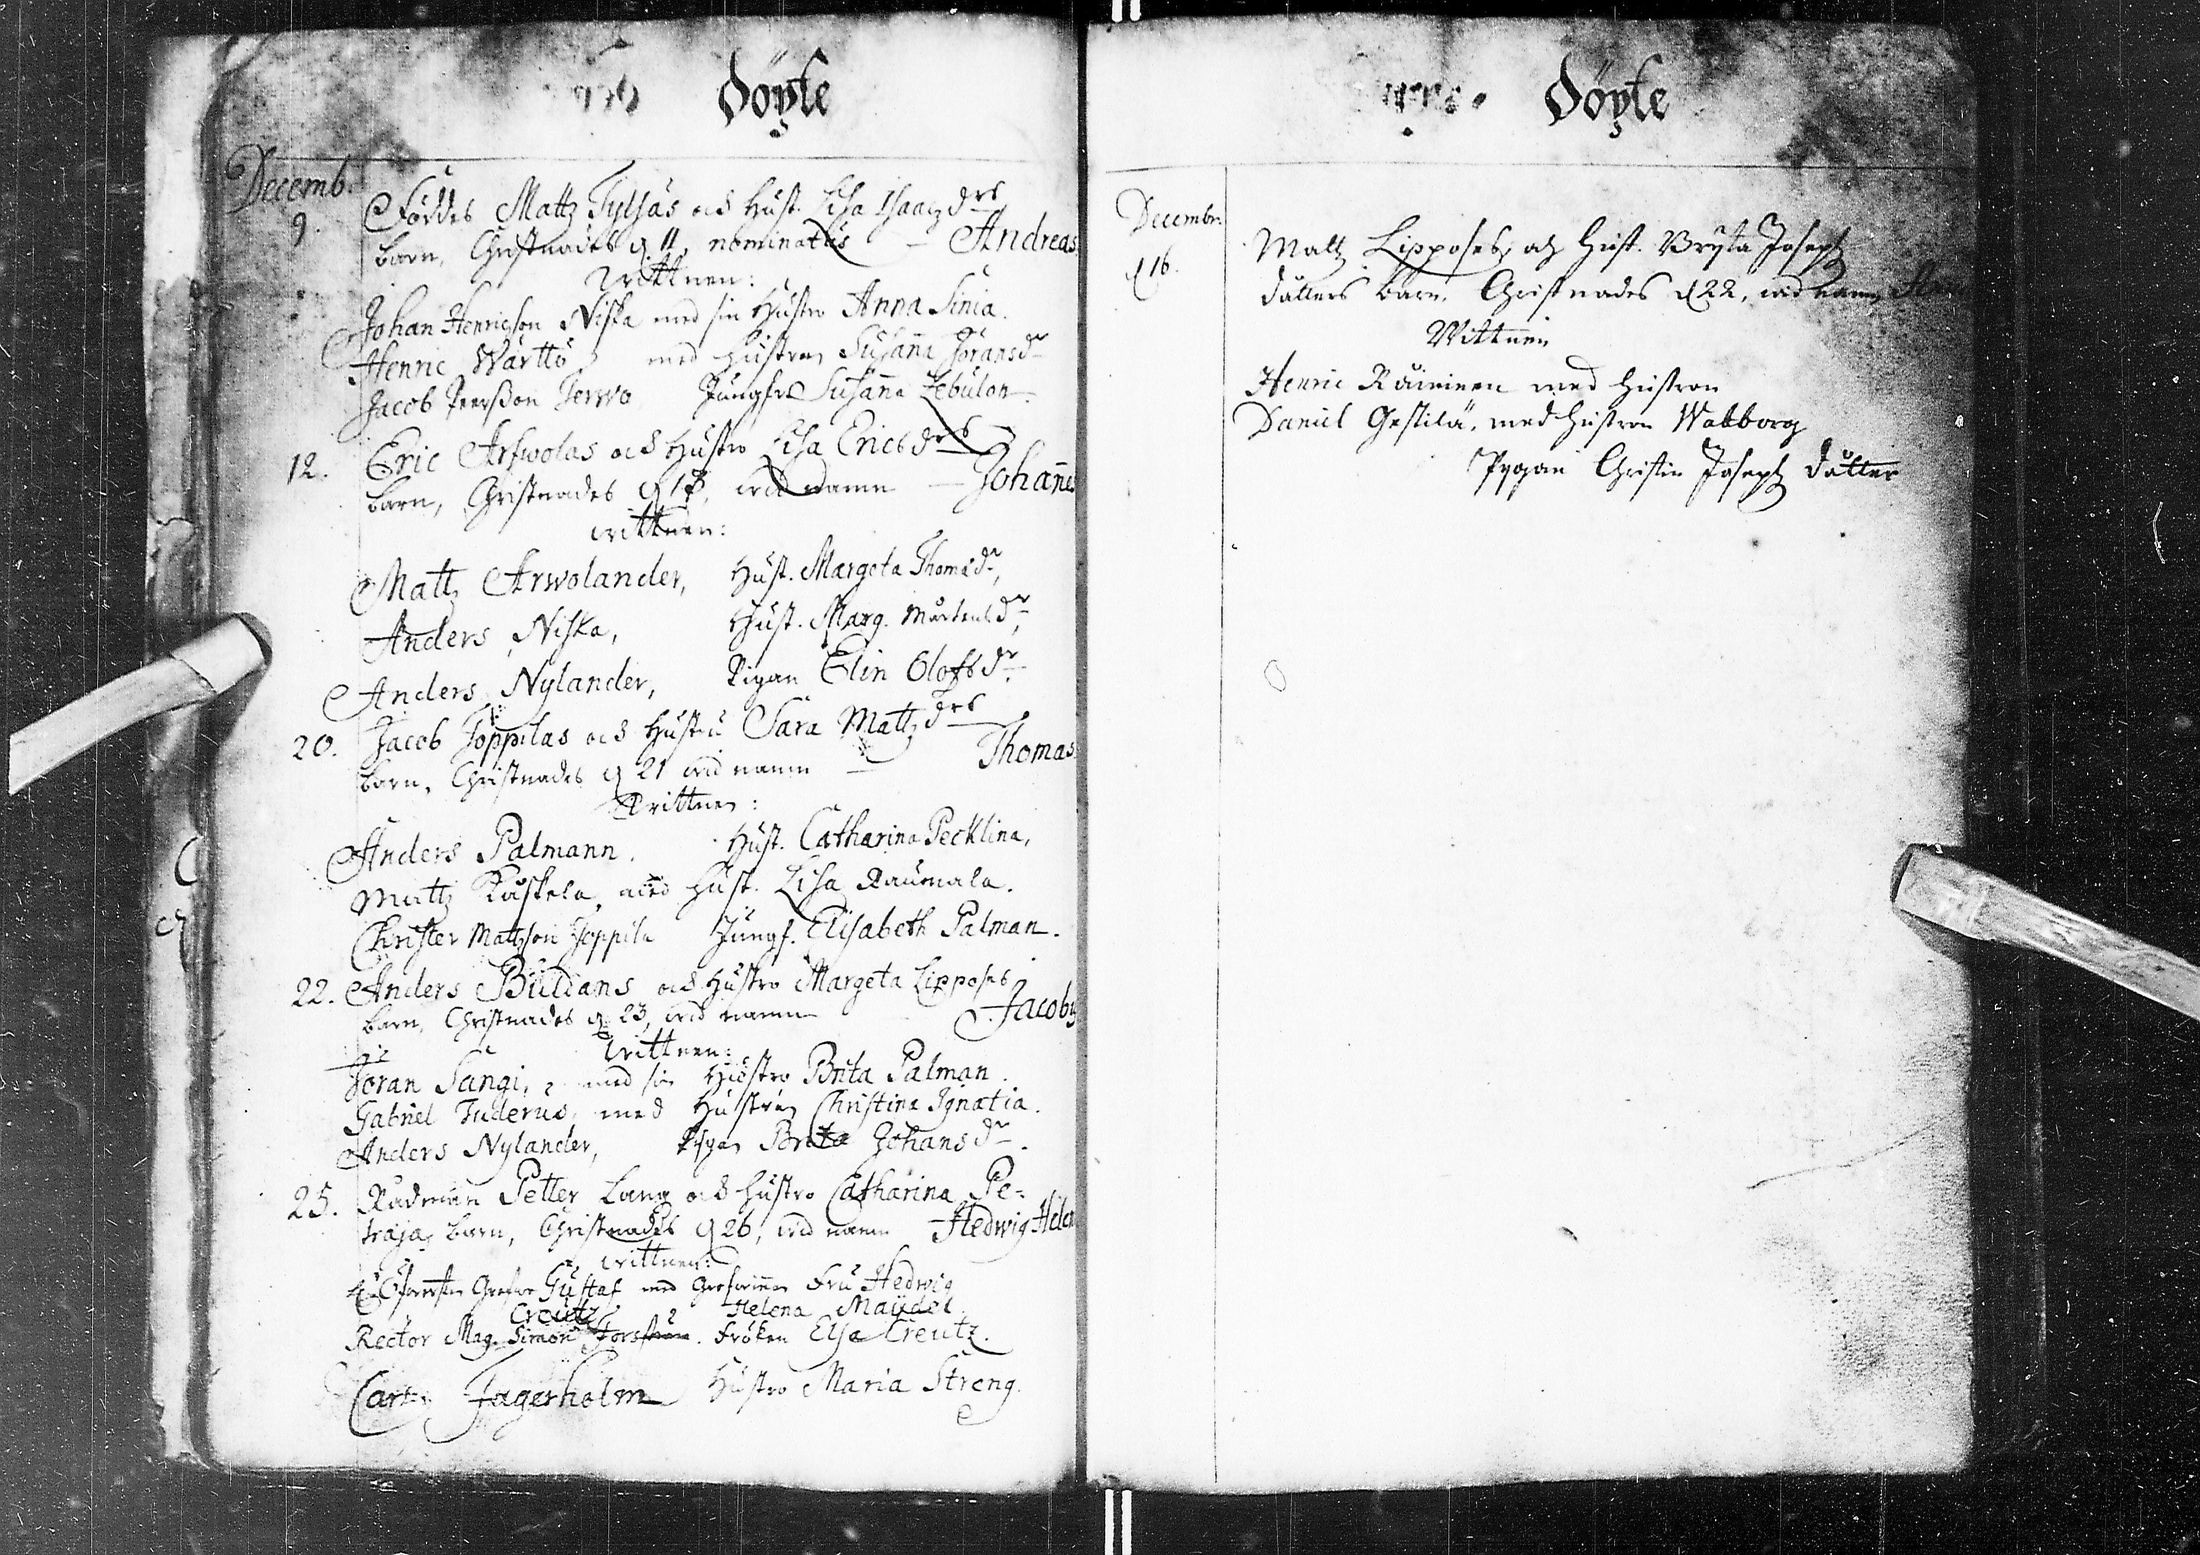 Döpte
Decemb.
9. Föddes Mattz Tylsas och Hust. Lisa Isaacz drs
barn, Christnades d. 11, nominatus — Andreas
Wittnen:
Johan Henricson Niska med sin Hustro Anna Sinia.
Henric Warttö med hustron Susanna Göransdr
Jacob Peersson Terwo Jungfr. Susanna Zebulon.
12. Eric Arfwolas och Hustro Lisa Ericsdrs
barn, Christnades d. wid namn — Johannes
wittnen:
Mattz Arwolander, Hust. Margeta Thomædr,
Anders Niska, Hust. Marg. Mårtensdr,
Anders Nylander, Pigan Elin Olofsdr.
20. Jacob Toppilas och Hustru Sara Mattz drs
barn, Christnades d. 21 wid namn — Thomas
Wittnen:
Anders Palmann. Hust. Catharina Pecklina,
Mattz Kaskela, med Hust. Lisa Raumala.
Christer Mattzson Toppila Jungf. Elisabeth Palman.
22. Anders Buldans och Hustro Margeta Lipposes
barn, Christnades d. 23, wid namn Jacob
Wittnen:
Jöran Sangi, med sin Hustro Brita Palman.
Gabriel Tuderus, med Hustrun Christina Ignatia.
Anders Nylander, Pigan Brita Johansdr.
25. Rådman Petter Lang och hustro Catharina Pe-
traja, barn, Christnades d. 26, wid namn — Hedwig Helen
wittnen:
Öfwersten Grefwe Gustaf med Grefwinnan Fru Hedwig
Creutz Helena Maÿdel.
Rector Mag. Simon Forsström. Fröken Elsa Creutz.
Carl Jagerholm Hustro Maria Streng.
Döpte
Decembr.
d 16. Mattz Lipposes, och Hust. Bryta Josephz
dåtters barn. Christnades d 22, wid namn
Wittnen
Henric Räininen med hustron
Daniel Gestilä, med hustron Walborg
Pygan Christin Josephz dåtter